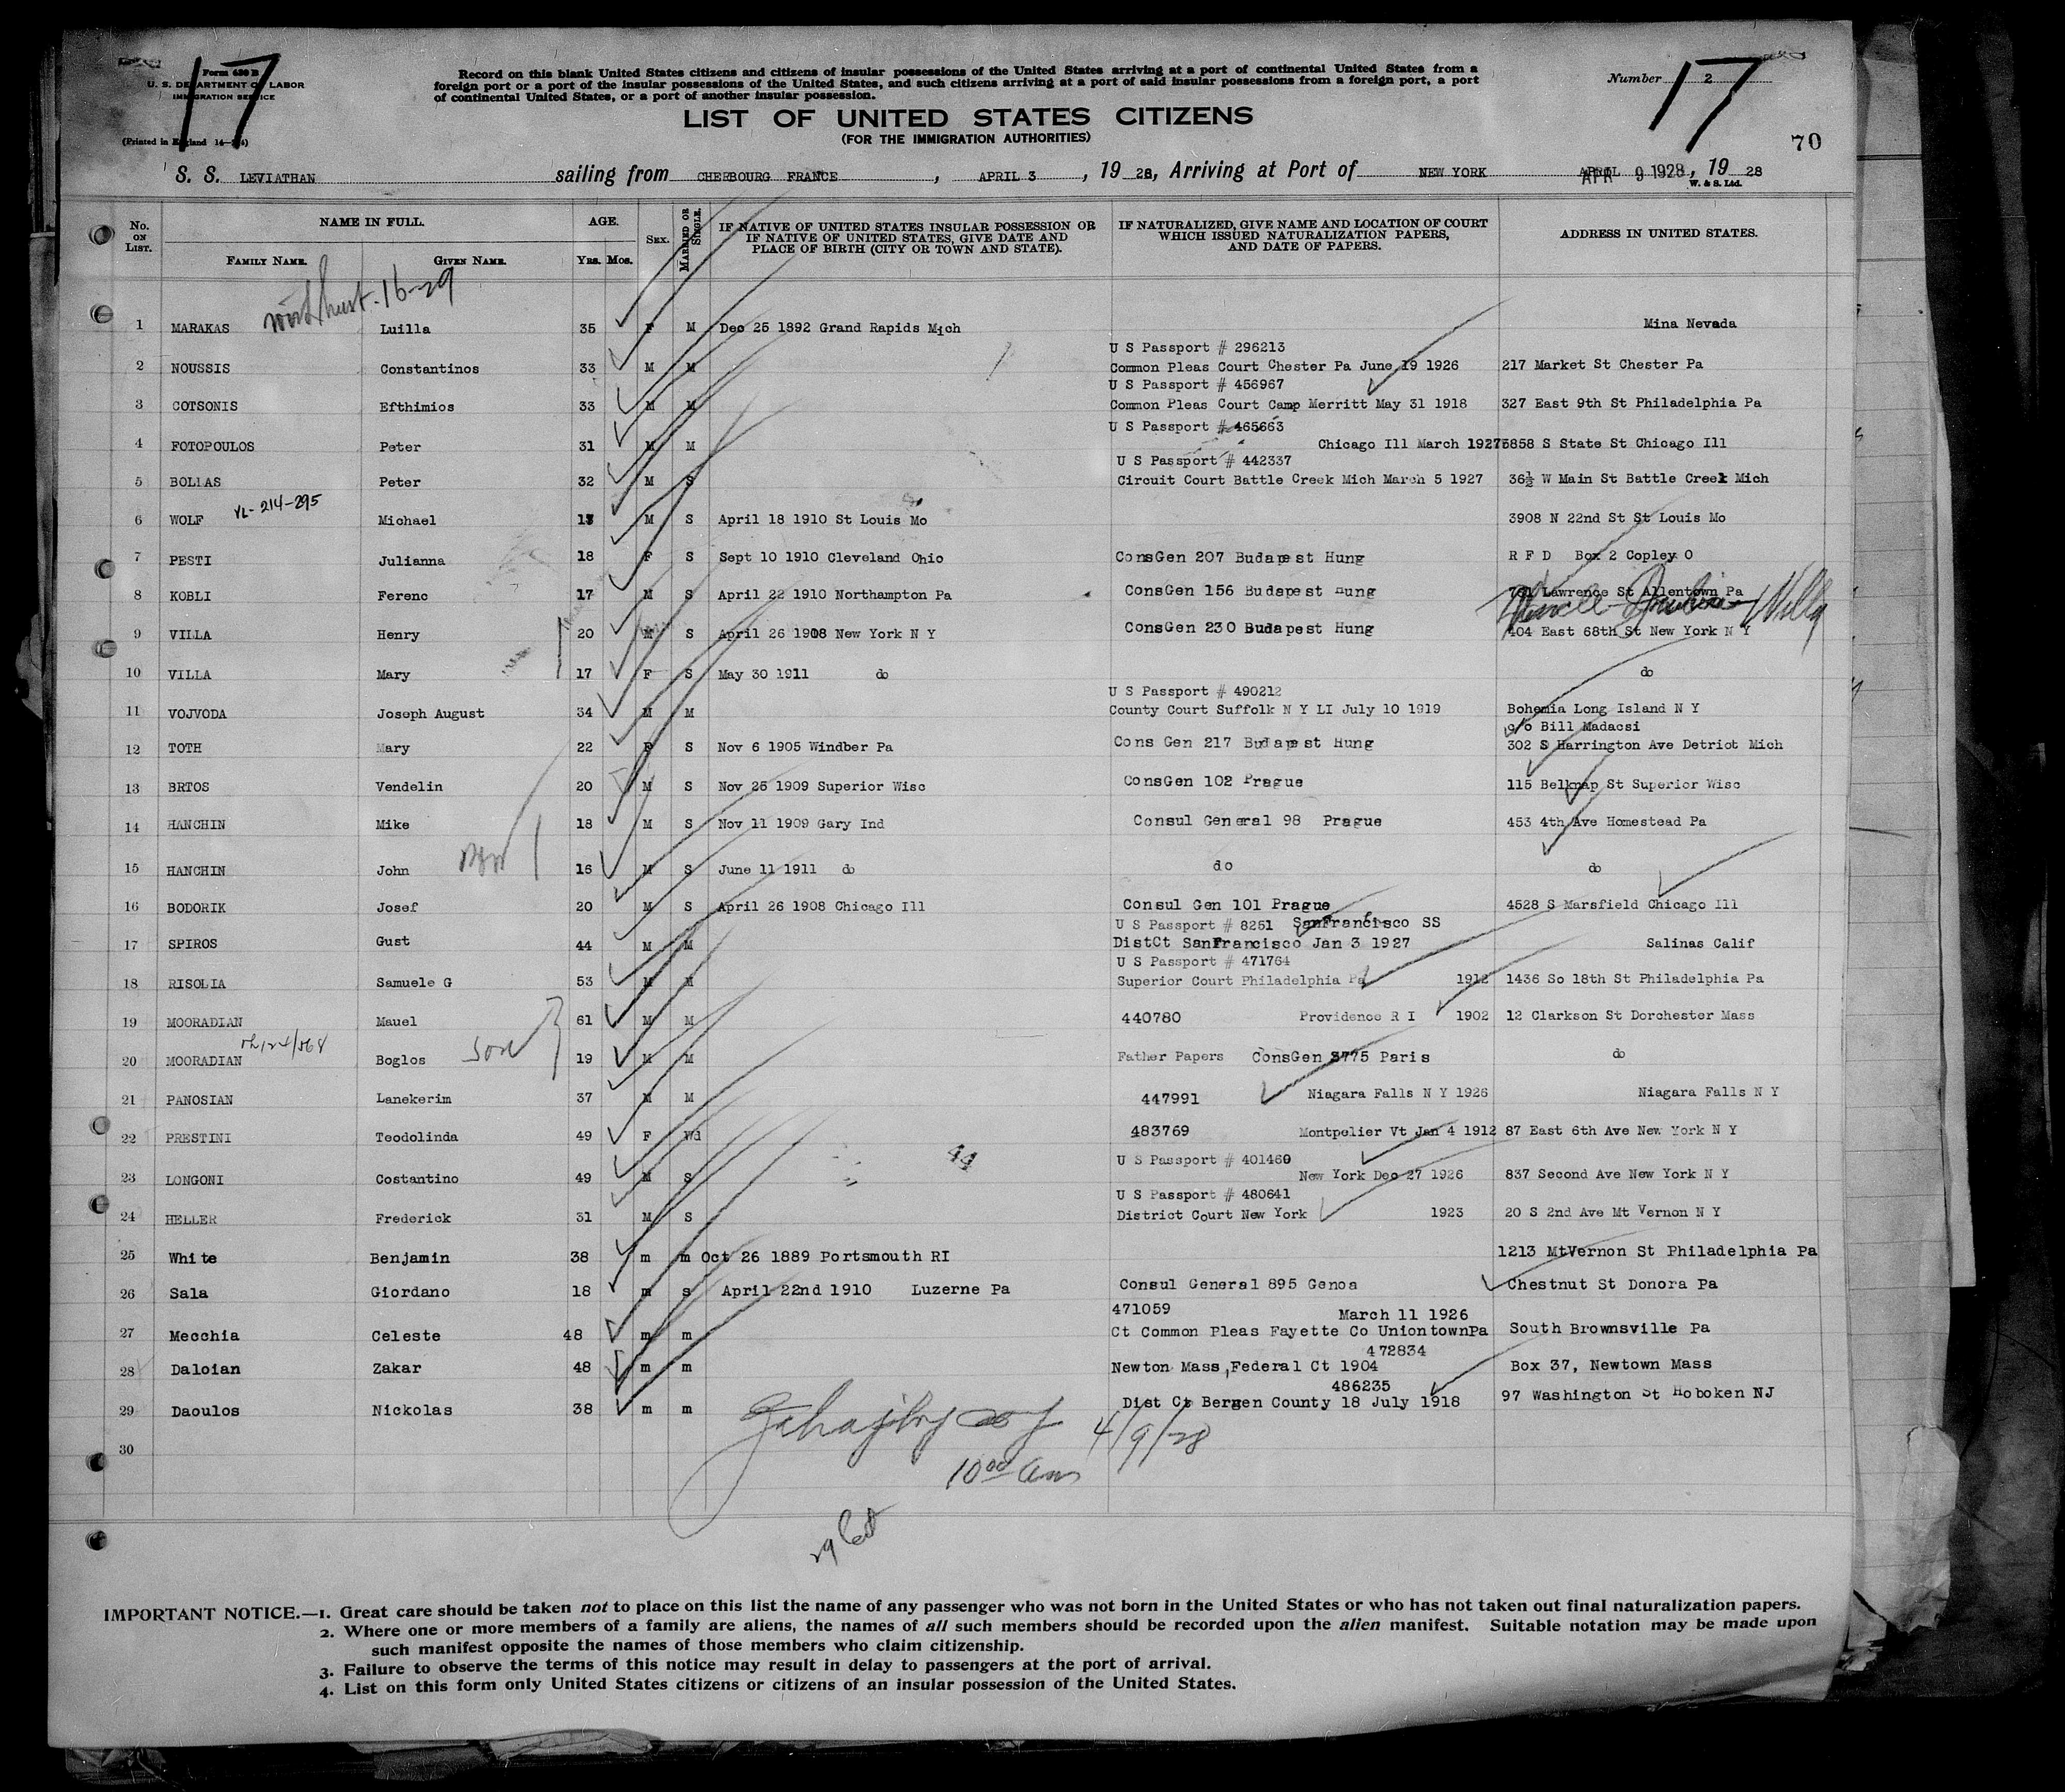 17
17
Form 630 B
U. S. DEPARTMENT OF LABOR
IMMIGRATION SERVICE
(Printed in England 14—
Record on this blank United States citizens and citizens of insular possessions of the United States arriving at a port of continental United States from a
foreign port or a port of the insular possessions of the United States, and such citizens arriving at a port of said insular possessions from a foreign port, a port
of continental United States, or a port of another insular possession.
Number 2
LIST OF UNITED STATES CITIZENS
(FOR THE IMMIGRATION AUTHORITIES)
70
S. S. LEVIATHAN sailing from CHERBOURG FRANCE, APRIL 3, 19 28, Arriving at Port of NEW YORK APRIL APR 9 1928, 19 28
W. & S. Ltd.
No. ON LIST. NAME IN FULL. AGE. SEX. MARRIED OR SINGLE. IF NATIVE OF UNITED STATES INSULAR POSSESSION OR IF NATIVE OF UNITED STATES, GIVE DATE AND PLACE OF BIRTH (CITY OR TOWN AND STATE). IF NATURALIZED, GIVE NAME AND LOCATION OF COURT WHICH ISSUED NATURALIZATION PAPERS, AND DATE OF PAPERS. ADDRESS IN UNITED STATES.
FAMILY NAME. GIVEN NAME. YRS. MOS.
16-29
1 MARAKAS Luilla 35 F M Dec 25 1892 Grand Rapids Mich Mina Nevada
U S Passport # 296213
2 NOUSSIS Constantinos 33 M M Common Pleas Court Chester Pa June 19 1926 217 Market St Chester Pa
U S Passport # 456967
3 COTSONIS Efthimios 33 M M Common Pleas Court Camp Merritt May 31 1918 327 East 9th St Philadelphia Pa
U S Passport # 465663
4 FOTOPOULOS Peter 31 M M Chicago Ill March 1927 5858 S State St Chicago Ill
U S Passport # 442337
5 BOLLAS Peter 32 M S Circuit Court Battle Creek Mich March 5 1927 36½ W Main St Battle Creek Mich
VL-214-295
6 WOLF Michael 17 M S April 18 1910 St Louis Mo 3908 N 22nd St St Louis Mo
7 PESTI Julianna 18 F S Sept 10 1910 Cleveland Ohio ConsGen 207 Budapest Hung R F D Box 2 Copley O
8 KOBLI Ferenc 17 M S April 22 1910 Northampton Pa ConsGen 156 Budapest Hung Lawrence St Allentown Pa
9 VILLA Henry 20 M S April 26 1908 New York N Y ConsGen 230 Budapest Hung 404 East 68th St New York N Y
10 VILLA Mary 17 F S May 30 1911 do do
U S Passport # 490212
11 VOJVODA Joseph August 34 M M County Court Suffolk N Y LI July 10 1919 Bohemia Long Island N Y
c/o Bill Madacsi
12 TOTH Mary 22 F S Nov 6 1905 Windber Pa Cons Gen 217 Budapest Hung 302 S Harrington Ave Detriot Mich
13 BRTOS Vendelin 20 M S Nov 25 1909 Superior Wisc ConsGen 102 Prague 115 Belknap St Superior Wisc
14 HANCHIN Mike 18 M S Nov 11 1909 Gary Ind Consul General 98 Prague 453 4th Ave Homestead Pa
15 HANCHIN John 16 M S June 11 1911 do do do
16 BODORIK Josef 20 M S April 26 1908 Chicago Ill Consul Gen 101 Prague 4528 S Marsfield Chicago Ill
U S Passport # 8251 SanFrancisco SS
17 SPIROS Gust 44 M M DistCt SanFrancisco Jan 3 1927 Salinas Calif
U S Passport # 471764
18 RISOLIA Samuele G 53 M M Superior Court Philadelphia Pa 1912 1436 So 18th St Philadelphia Pa
19 MOORADIAN Mauel 61 M M 440780 Providence R I 1902 12 Clarkson St Dorchester Mass
20 MOORADIAN Boglos son 19 M M Father Papers ConsGen 3775 Paris do
21 PANOSIAN Lanekerim 37 M M 447991 Niagara Falls N Y 1926 Niagara Falls N Y
22 PRESTINI Teodolinda 49 F Wd 483769 Montpelier Vt Jan 4 1912 87 East 6th Ave New York N Y
44
U S Passport # 401460
23 LONGONI Costantino 49 M S New York Dec 27 1926 837 Second Ave New York N Y
U S Passport # 480641
24 HELLER Frederick 31 M S District Court New York 1923 20 S 2nd Ave Mt Vernon N Y
25 White Benjamin 38 m m Oct 26 1889 Portsmouth RI 1213 MtVernon St Philadelphia Pa
26 Sala Giordano 18 m s April 22nd 1910 Luzerne Pa Consul General 895 Genoa Chestnut St Donora Pa
471059 March 11 1926
27 Mecchia Celeste 48 m m Ct Common Pleas Fayette Co UniontownPa South Brownsville Pa
472834
28 Daloian Zakar 48 m m Newton Mass,Federal Ct 1904 Box 37, Newtown Mass
486235
29 Daoulos Nickolas 38 m m Dist Ct Bergen County 18 July 1918 97 Washington St Hoboken NJ
4/9/28
30
10 00 am
IMPORTANT NOTICE.—1. Great care should be taken not to place on this list the name of any passenger who was not born in the United States or who has not taken out final naturalization papers.
2. Where one or more members of a family are aliens, the names of all such members should be recorded upon the alien manifest. Suitable notation may be made upon
such manifest opposite the names of those members who claim citizenship.
3. Failure to observe the terms of this notice may result in delay to passengers at the port of arrival.
4. List on this form only United States citizens or citizens of an insular possession of the United States.